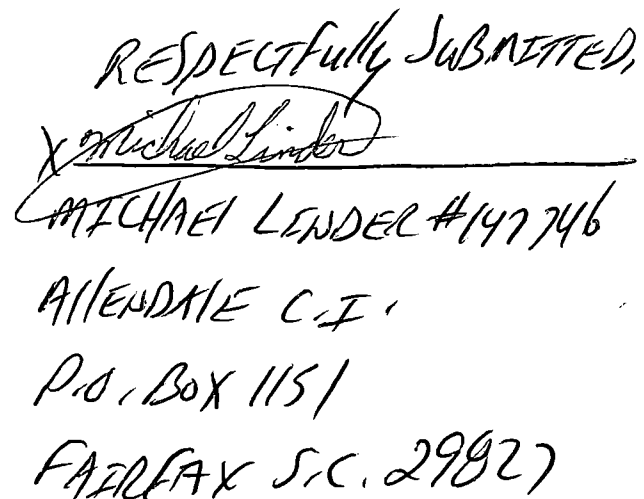 RESPECTFully SUBMITTED,
X Michael Linder
MICHAEl LINDER #147746
AllENDAlE C.I.
P.O. BOX 1151
FAIRFAX S.C. 29827